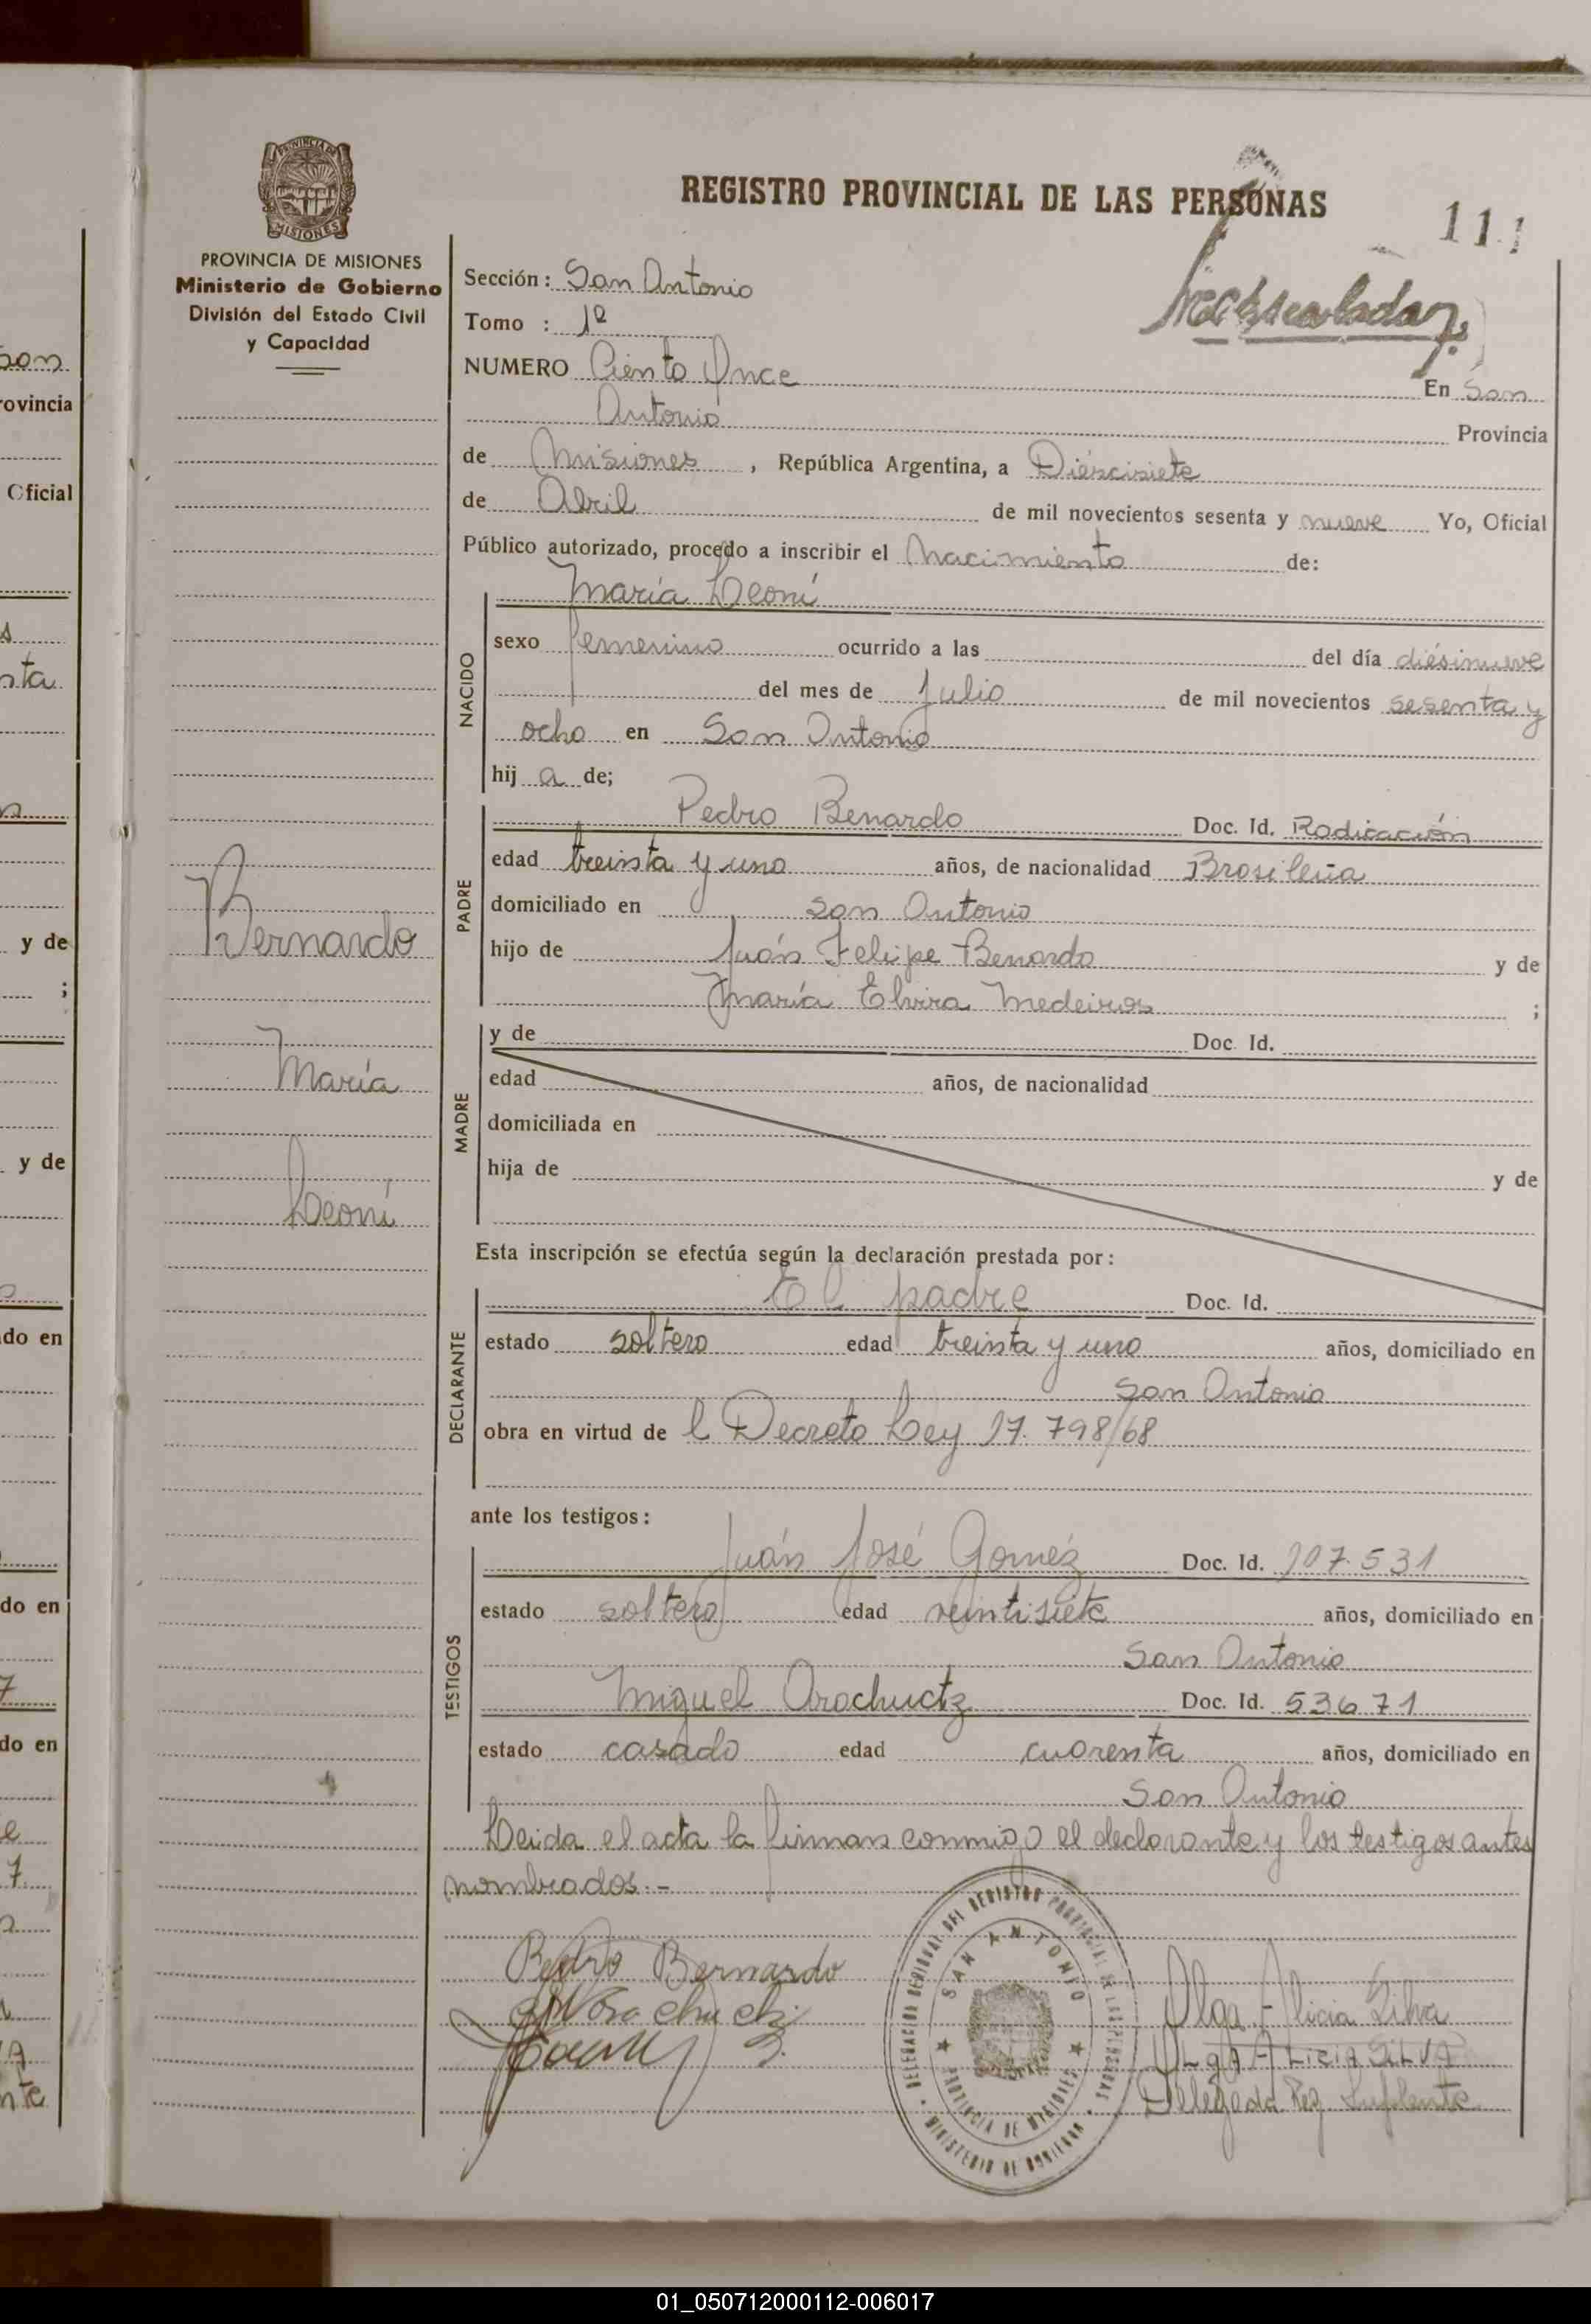 REGISTRO PROVINCIAL DE LAS PERSONAS
111
PROVINCIA DE MISIONES
Ministerio de Gobierno
División del Estado Civil
y Capacidad
Sección: San Antonio
Tomo : 1º
NUMERO Ciento Once En San
Antonio Provincia
de Misiones , República Argentina, a Diescisiete
de Abril de mil novecientos sesenta y nueve Yo, Oficial
Público autorizado, procedo a inscribir el Nacimiento de:
NACIDO
María Leoní
sexo femenino ocurrido a las del día diésinueve
del mes de Julio de mil novecientos sesenta y
ocho en San Antonio
hij a de;
PADRE
Pedro Benardo Doc. Id. Radicación
edad treinta y uno años, de nacionalidad Brasileña
domiciliado en San Antonio
hijo de Juán Felipe Benardo y de
María Elvira Medeiros ;
Bernardo
María
Leoní
MADRE
y de Doc. Id.
edad años, de nacionalidad
domiciliada en
hija de y de
Esta inscripción se efectúa según la declaración prestada por:
DECLARANTE
El padre Doc. Id.
estado soltero edad treinta y uno años, domiciliado en
San Antonio
obra en virtud de l Decreto Ley 17.798/68
ante los testigos:
TESTIGOS
Juán José Goméz Doc. Id. 107.531
estado soltero edad veintisiete años, domiciliado en
San Antonio
Miguel Doc. Id. 53671
estado casado edad cuarenta años, domiciliado en
San Antonio
Leida el acta la firman conmigo el declarante y los testigos antes
nombrados.-
Pedro Bernardo
Olga Alicia Silva
OLgA ALiciA SiLVA
Delegada Reg Suplente
DELEGACION REGIONAL DEL REGISTRO PROVINCIAL DE LAS PERSONAS
SAN ANTONIO
PROVINCIA DE MISIONES
MINISTERIO DE GOBIERNO
son
rovincia
Oficial
y de
;
y de
do en
do en
do en
01_050712000112-006017